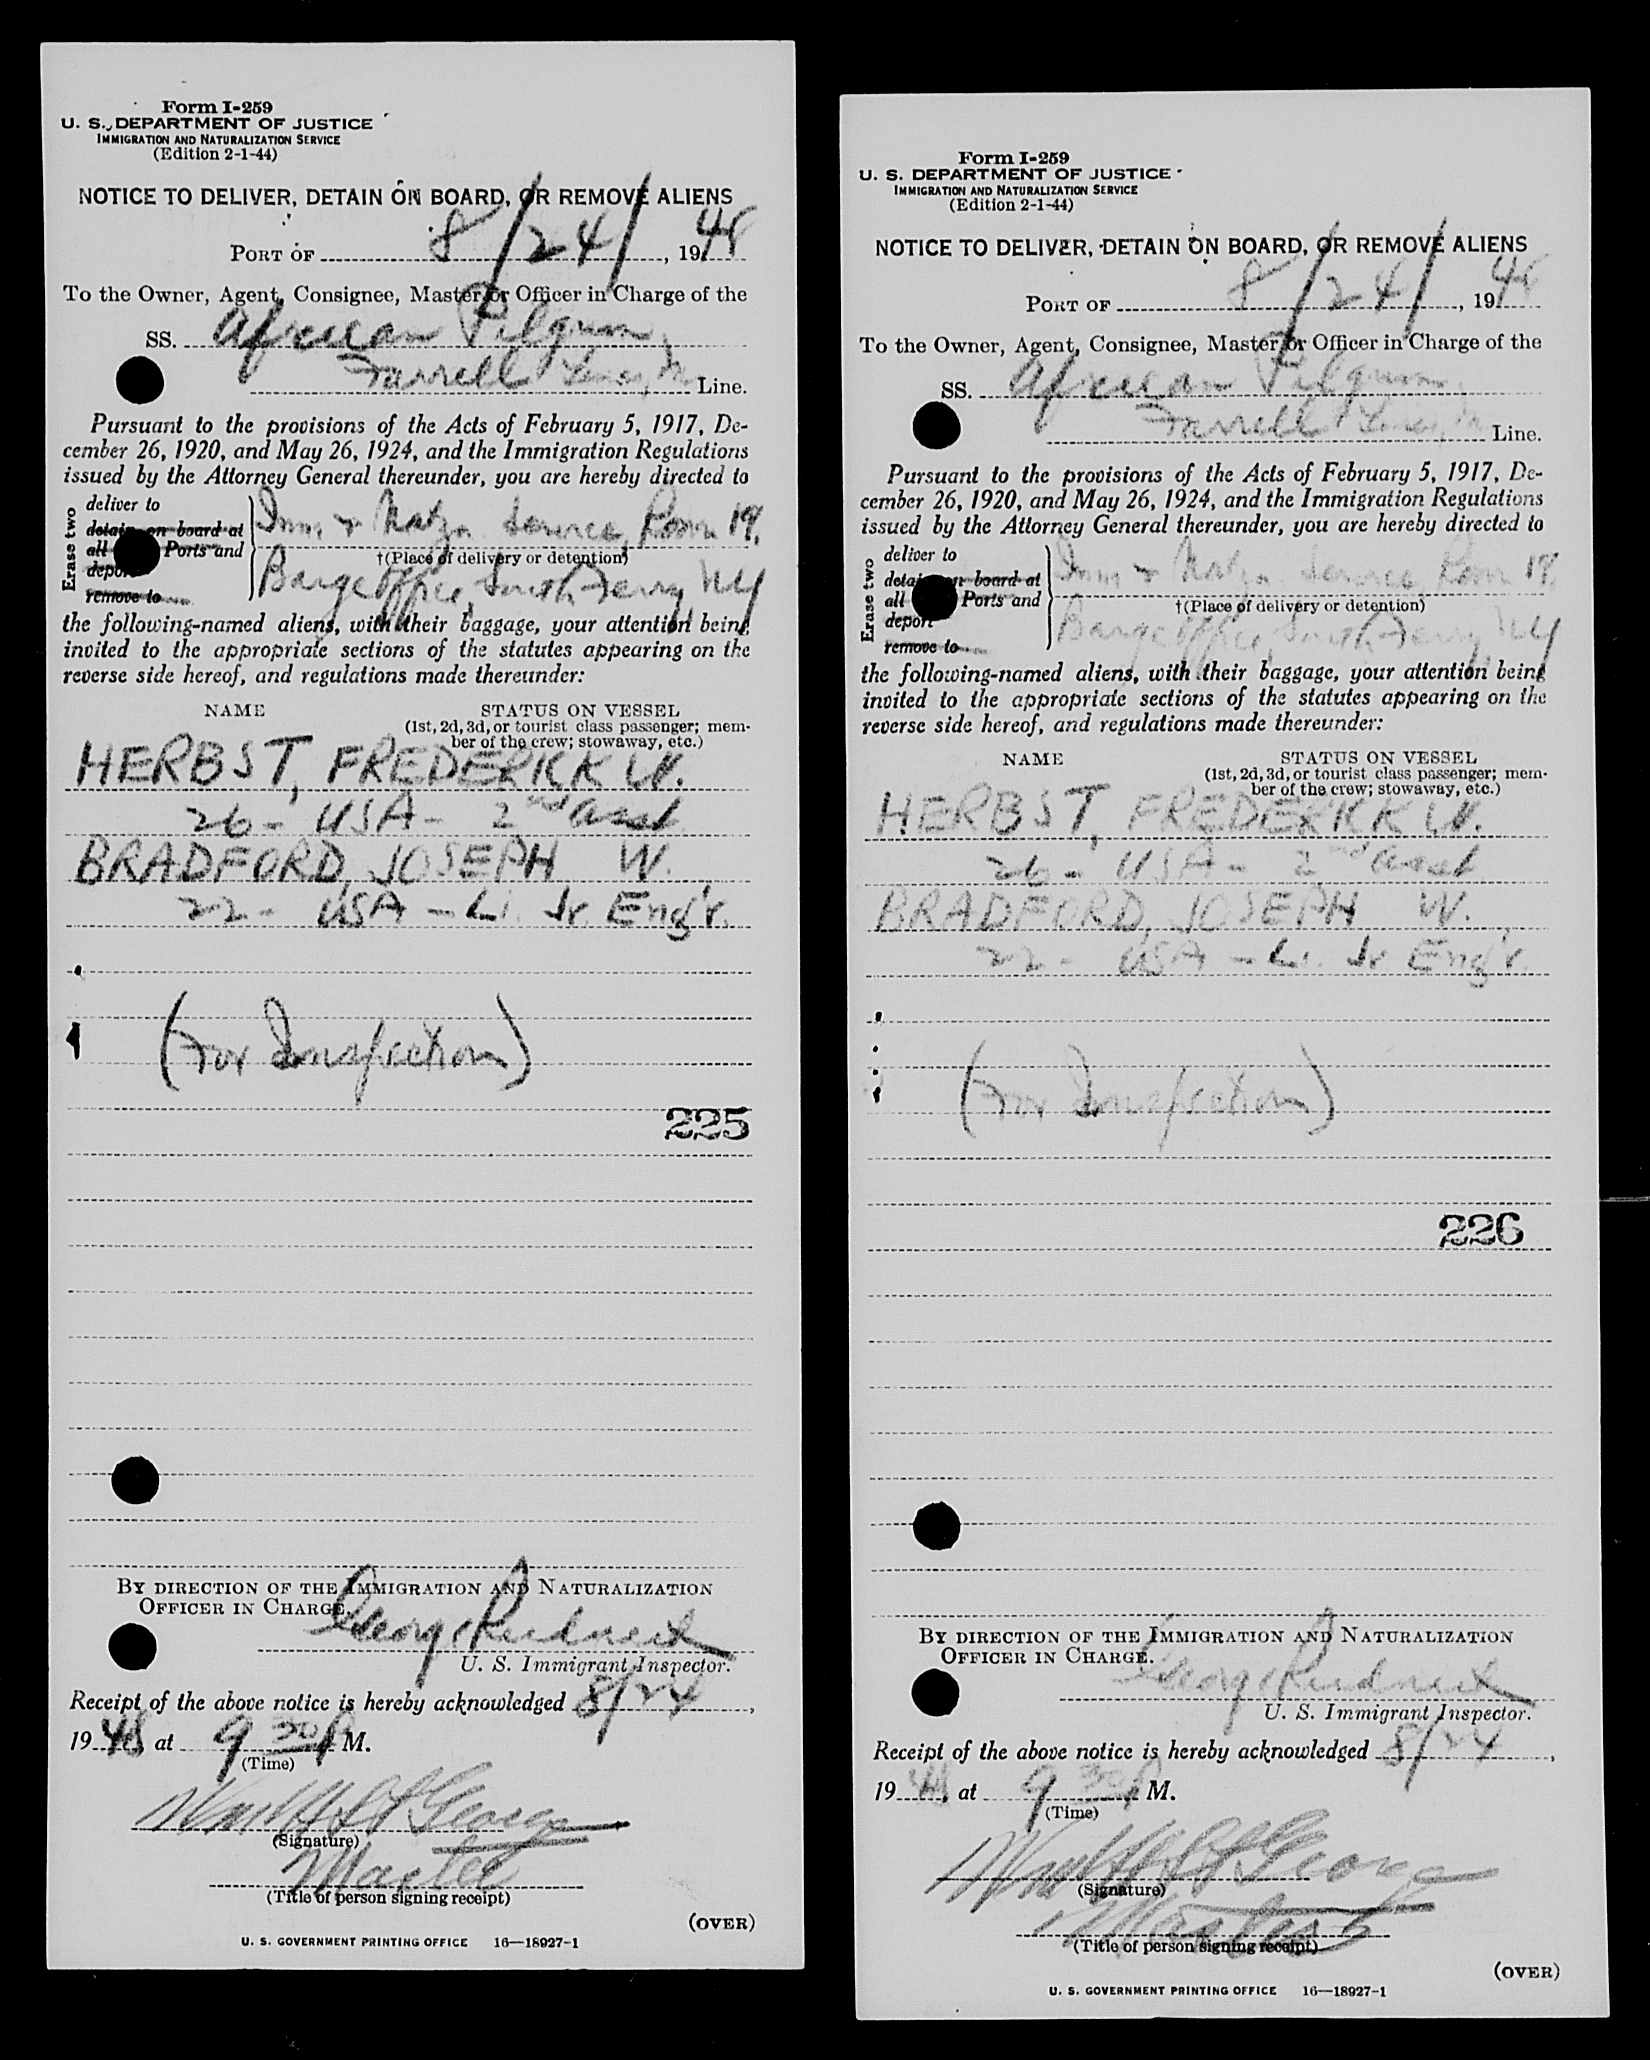 Form I-259
U. S. DEPARTMENT OF JUSTICE
IMMIGRATION AND NATURALIZATION SERVICE
(Edition 2-1-44)
NOTICE TO DELIVER, DETAIN ON BOARD, OR REMOVE ALIENS
PORT OF 8/24/, 1948
To the Owner, Agent, Consignee, Master, or Officer in Charge of the
SS. African Pilgrim,
Farrell Lines, Line.
Pursuant to the provisions of the Acts of February 5, 1917, De-
cember 26, 1920, and May 26, 1924, and the Immigration Regulations
issued by the Attorney General thereunder, you are hereby directed to
Erase two
deliver to
detain on board at
all Ports and
deport
remove to
Imm & Natzn Service, Room 19,
†(Place of delivery or detention)
Barge Office, South Ferry, NY
the following-named aliens, with their baggage, your attention being
invited to the appropriate sections of the statutes appearing on the
reverse side hereof, and regulations made thereunder:
NAME STATUS ON VESSEL
(1st, 2d, 3d, or tourist class passenger; mem-
ber of the crew; stowaway, etc.)
HERBST, FREDERICK W.
26 - USA - 2nd asst
BRADFORD, JOSEPH W.
22 - USA - Li. Jr. Eng'r.
(For Inspection)
225
BY DIRECTION OF THE IMMIGRATION AND NATURALIZATION
OFFICER IN CHARGE.
George
U. S. Immigrant Inspector.
Receipt of the above notice is hereby acknowledged 8/24,
1948, at 9 30 P M.
(Time)
Wm H St George
(Signature)
Master
(Title of person signing receipt)
(OVER)
U. S. GOVERNMENT PRINTING OFFICE 16—18927-1
Form I-259
U. S. DEPARTMENT OF JUSTICE
IMMIGRATION AND NATURALIZATION SERVICE
(Edition 2-1-44)
NOTICE TO DELIVER, DETAIN ON BOARD, OR REMOVE ALIENS
PORT OF 8/24/, 1948
To the Owner, Agent, Consignee, Master, or Officer in Charge of the
SS. African Pilgrim,
Farrell Lines, Line.
Pursuant to the provisions of the Acts of February 5, 1917, De-
cember 26, 1920, and May 26, 1924, and the Immigration Regulations
issued by the Attorney General thereunder, you are hereby directed to
Erase two
deliver to
detain on board at
all Ports and
deport
remove to
Imm & Natzn Service, Room 19,
†(Place of delivery or detention)
Barge Office, South Ferry, NY
the following-named aliens, with their baggage, your attention being
invited to the appropriate sections of the statutes appearing on the
reverse side hereof, and regulations made thereunder:
NAME STATUS ON VESSEL
(1st, 2d, 3d, or tourist class passenger; mem-
ber of the crew; stowaway, etc.)
HERBST, FREDERICK W.
26 - USA - 2nd asst
BRADFORD, JOSEPH W.
22 - USA - Li. Jr Eng'r.
(For Inspection)
226
BY DIRECTION OF THE IMMIGRATION AND NATURALIZATION
OFFICER IN CHARGE.
George
U. S. Immigrant Inspector.
Receipt of the above notice is hereby acknowledged 8/24,
1948, at 9 30 P M.
(Time)
Wm H St George
(Signature)
Master
(Title of person signing receipt)
(OVER)
U. S. GOVERNMENT PRINTING OFFICE 16—18927-1